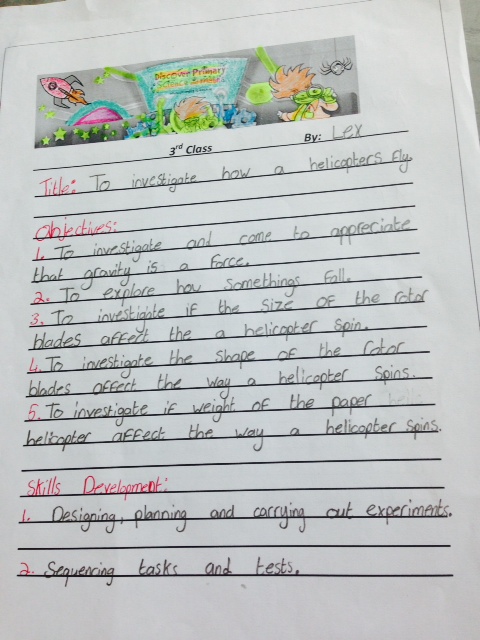 Discover Primary
Science & Maths
3rd Class By: Lex
Title: To investigate how a helicopters fly.
Objectives:
1. To investigate and come to appreciate
that gravity is a force.
2. To explore how somethings fall.
3. To investigate if the size of the rotor
blades affect the a helicopter spin.
4. To investigate the shape of the rotor
blades affect the way a helicopter spins.
5. To investigate if weight of the paper
helicopter affect the way a helicopter spins.
Skills Development:
1. Designing, planning and carrying out experiments.
2. Sequencing tasks and tests.